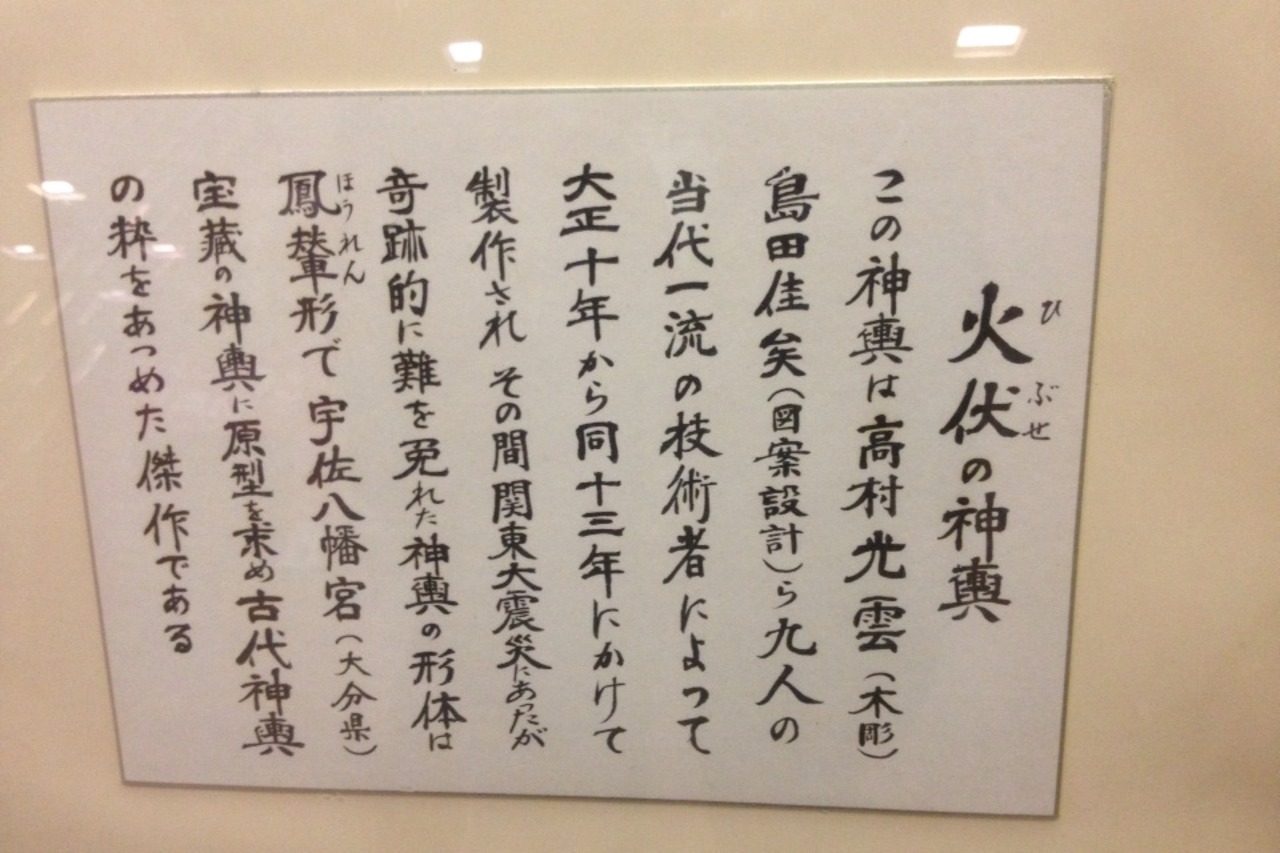 火伏の神輿
ひ ぶせ
この神輿は高村光雲（木彫）
島田佳矣（図案設計）ら九人の
当代一流の技術者によって
大正十年から同十三年にかけて
製作され その間関東大震災にあったが
奇跡的に難を免れた神輿の形体は
鳳輦形で宇佐八幡宮（大分県）
ほうれん
宝蔵の神輿に原型を求め古代神輿
の粋をあつめた傑作である